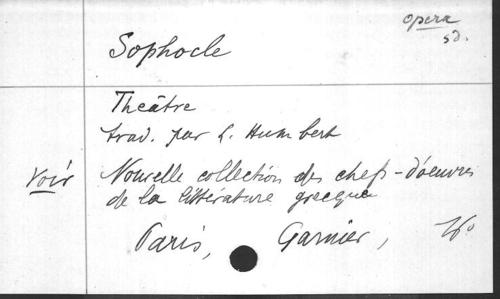 opera
sd.
Sophocle
Théâtre
trad. par L. Humbert
Voir Nouvelle collection des chefs-d'oeuvres
de la littérature grecque
Paris, Garnier,